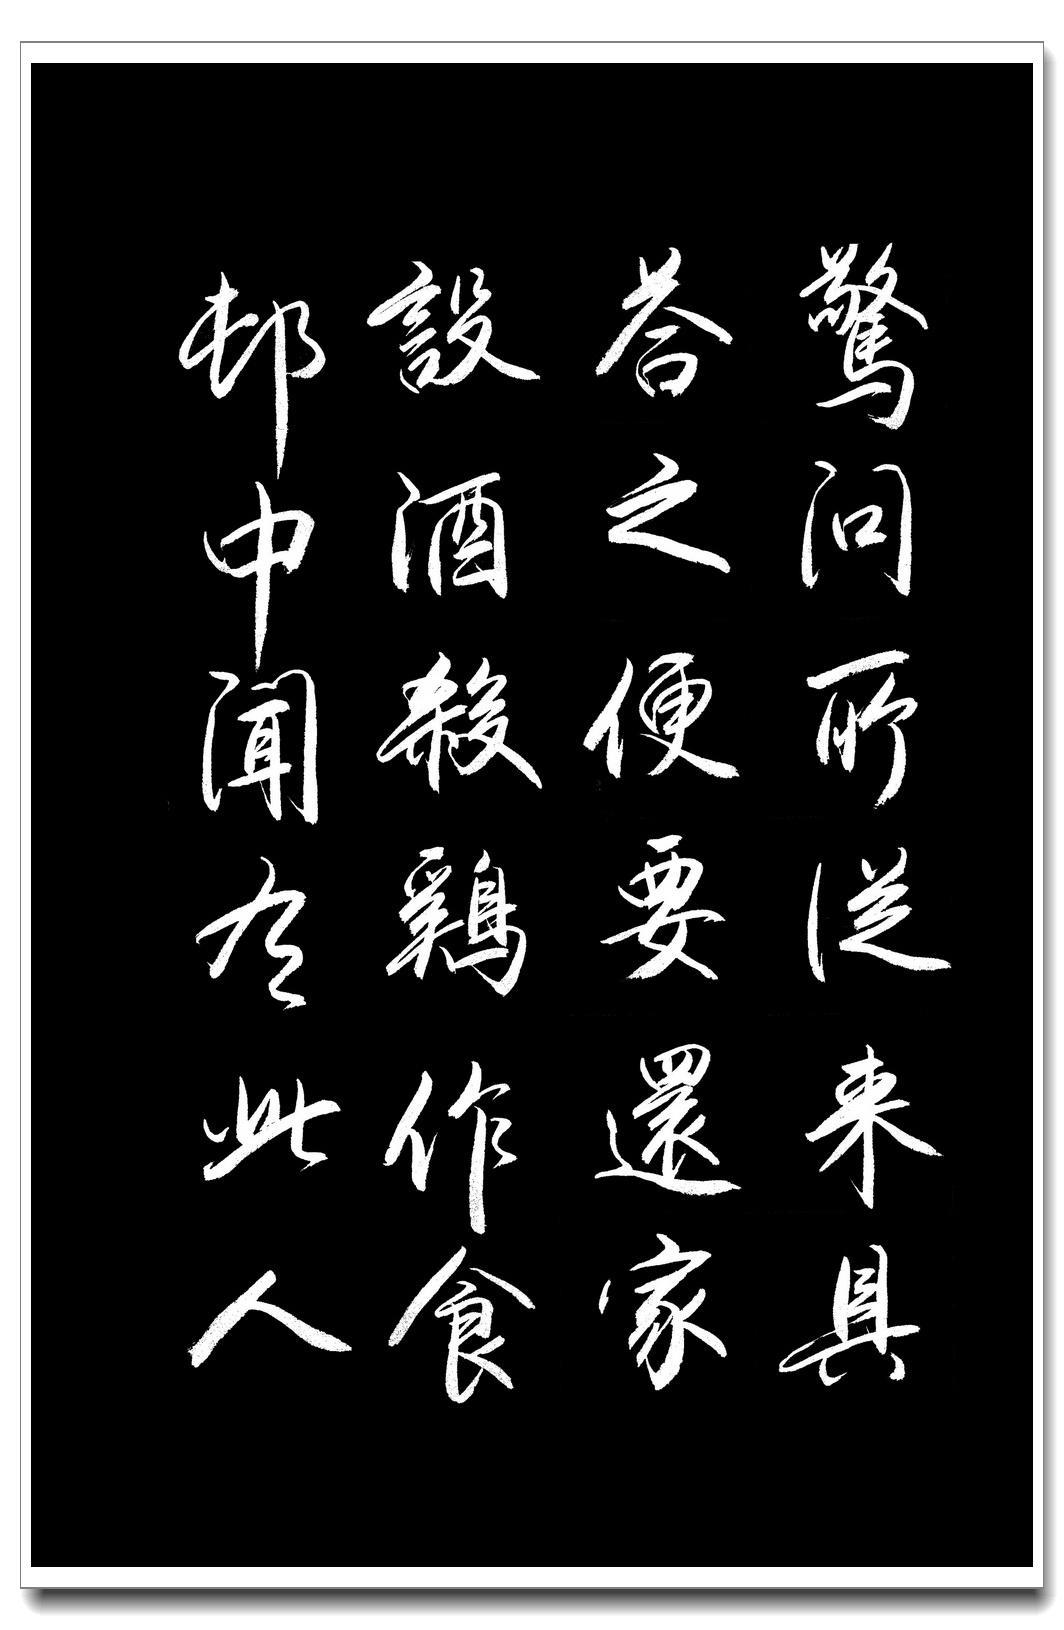 驚問所從来具
答之便要還家
設酒殺鷄作食
邨中聞有此人